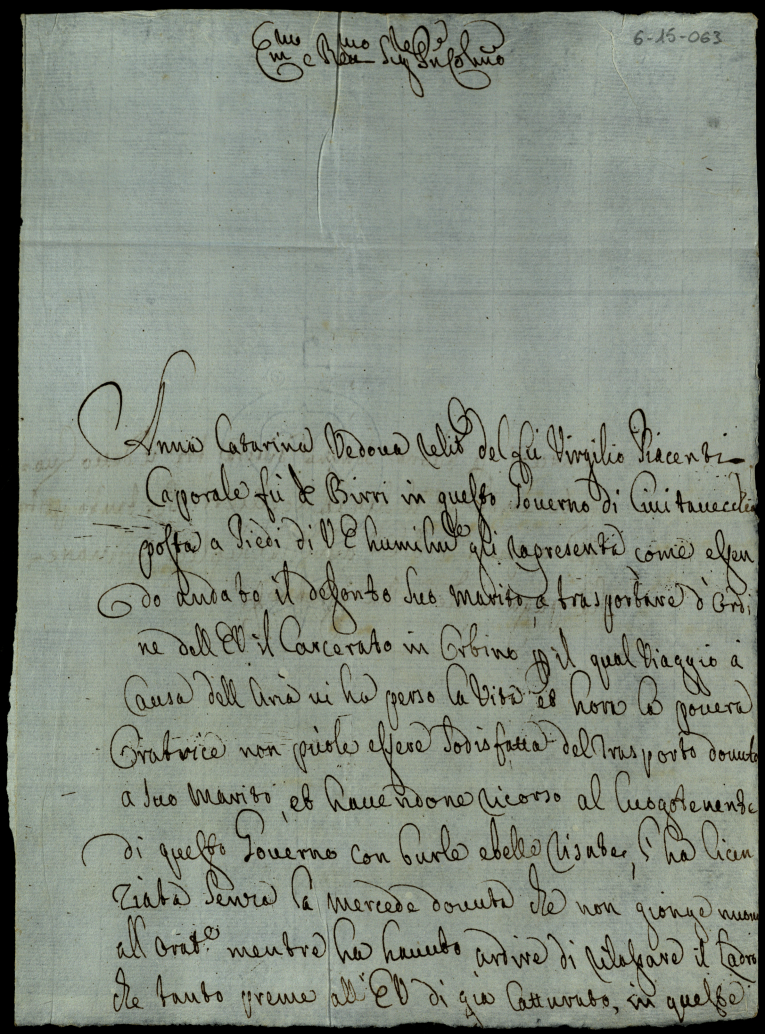 6-15-063
Em̃o e Rm̃o Sig.re
Anna Catarina Vedova relit.a del q̃ Virgilio Piacenti
Caporale fù de Birri in questo Governo di Civitavecchia
posta a Piedi di V E humilm.te gli rapresenta come essen
do andato il defonto Suo Marito à trasportare d'Ordi
ne dell EV il Carcerato in Orbino p il qual Viaggio à
Causa dell Aria vi ha perso la Vita et hora la povera
Oratrice non puole essere Sodisfatta del Trasporto dovuto
a Suo Marito, et havendone ricorso al Luogotenente
di questo Governo con burle e belle risate, l'ha licen
ziata Senza la mercede dovuta che non gionge nuovo
all Orat.e mentre ha havuto ardire di rilassare il Ladro
che tanto preme all' EV di già Catturato, in queste